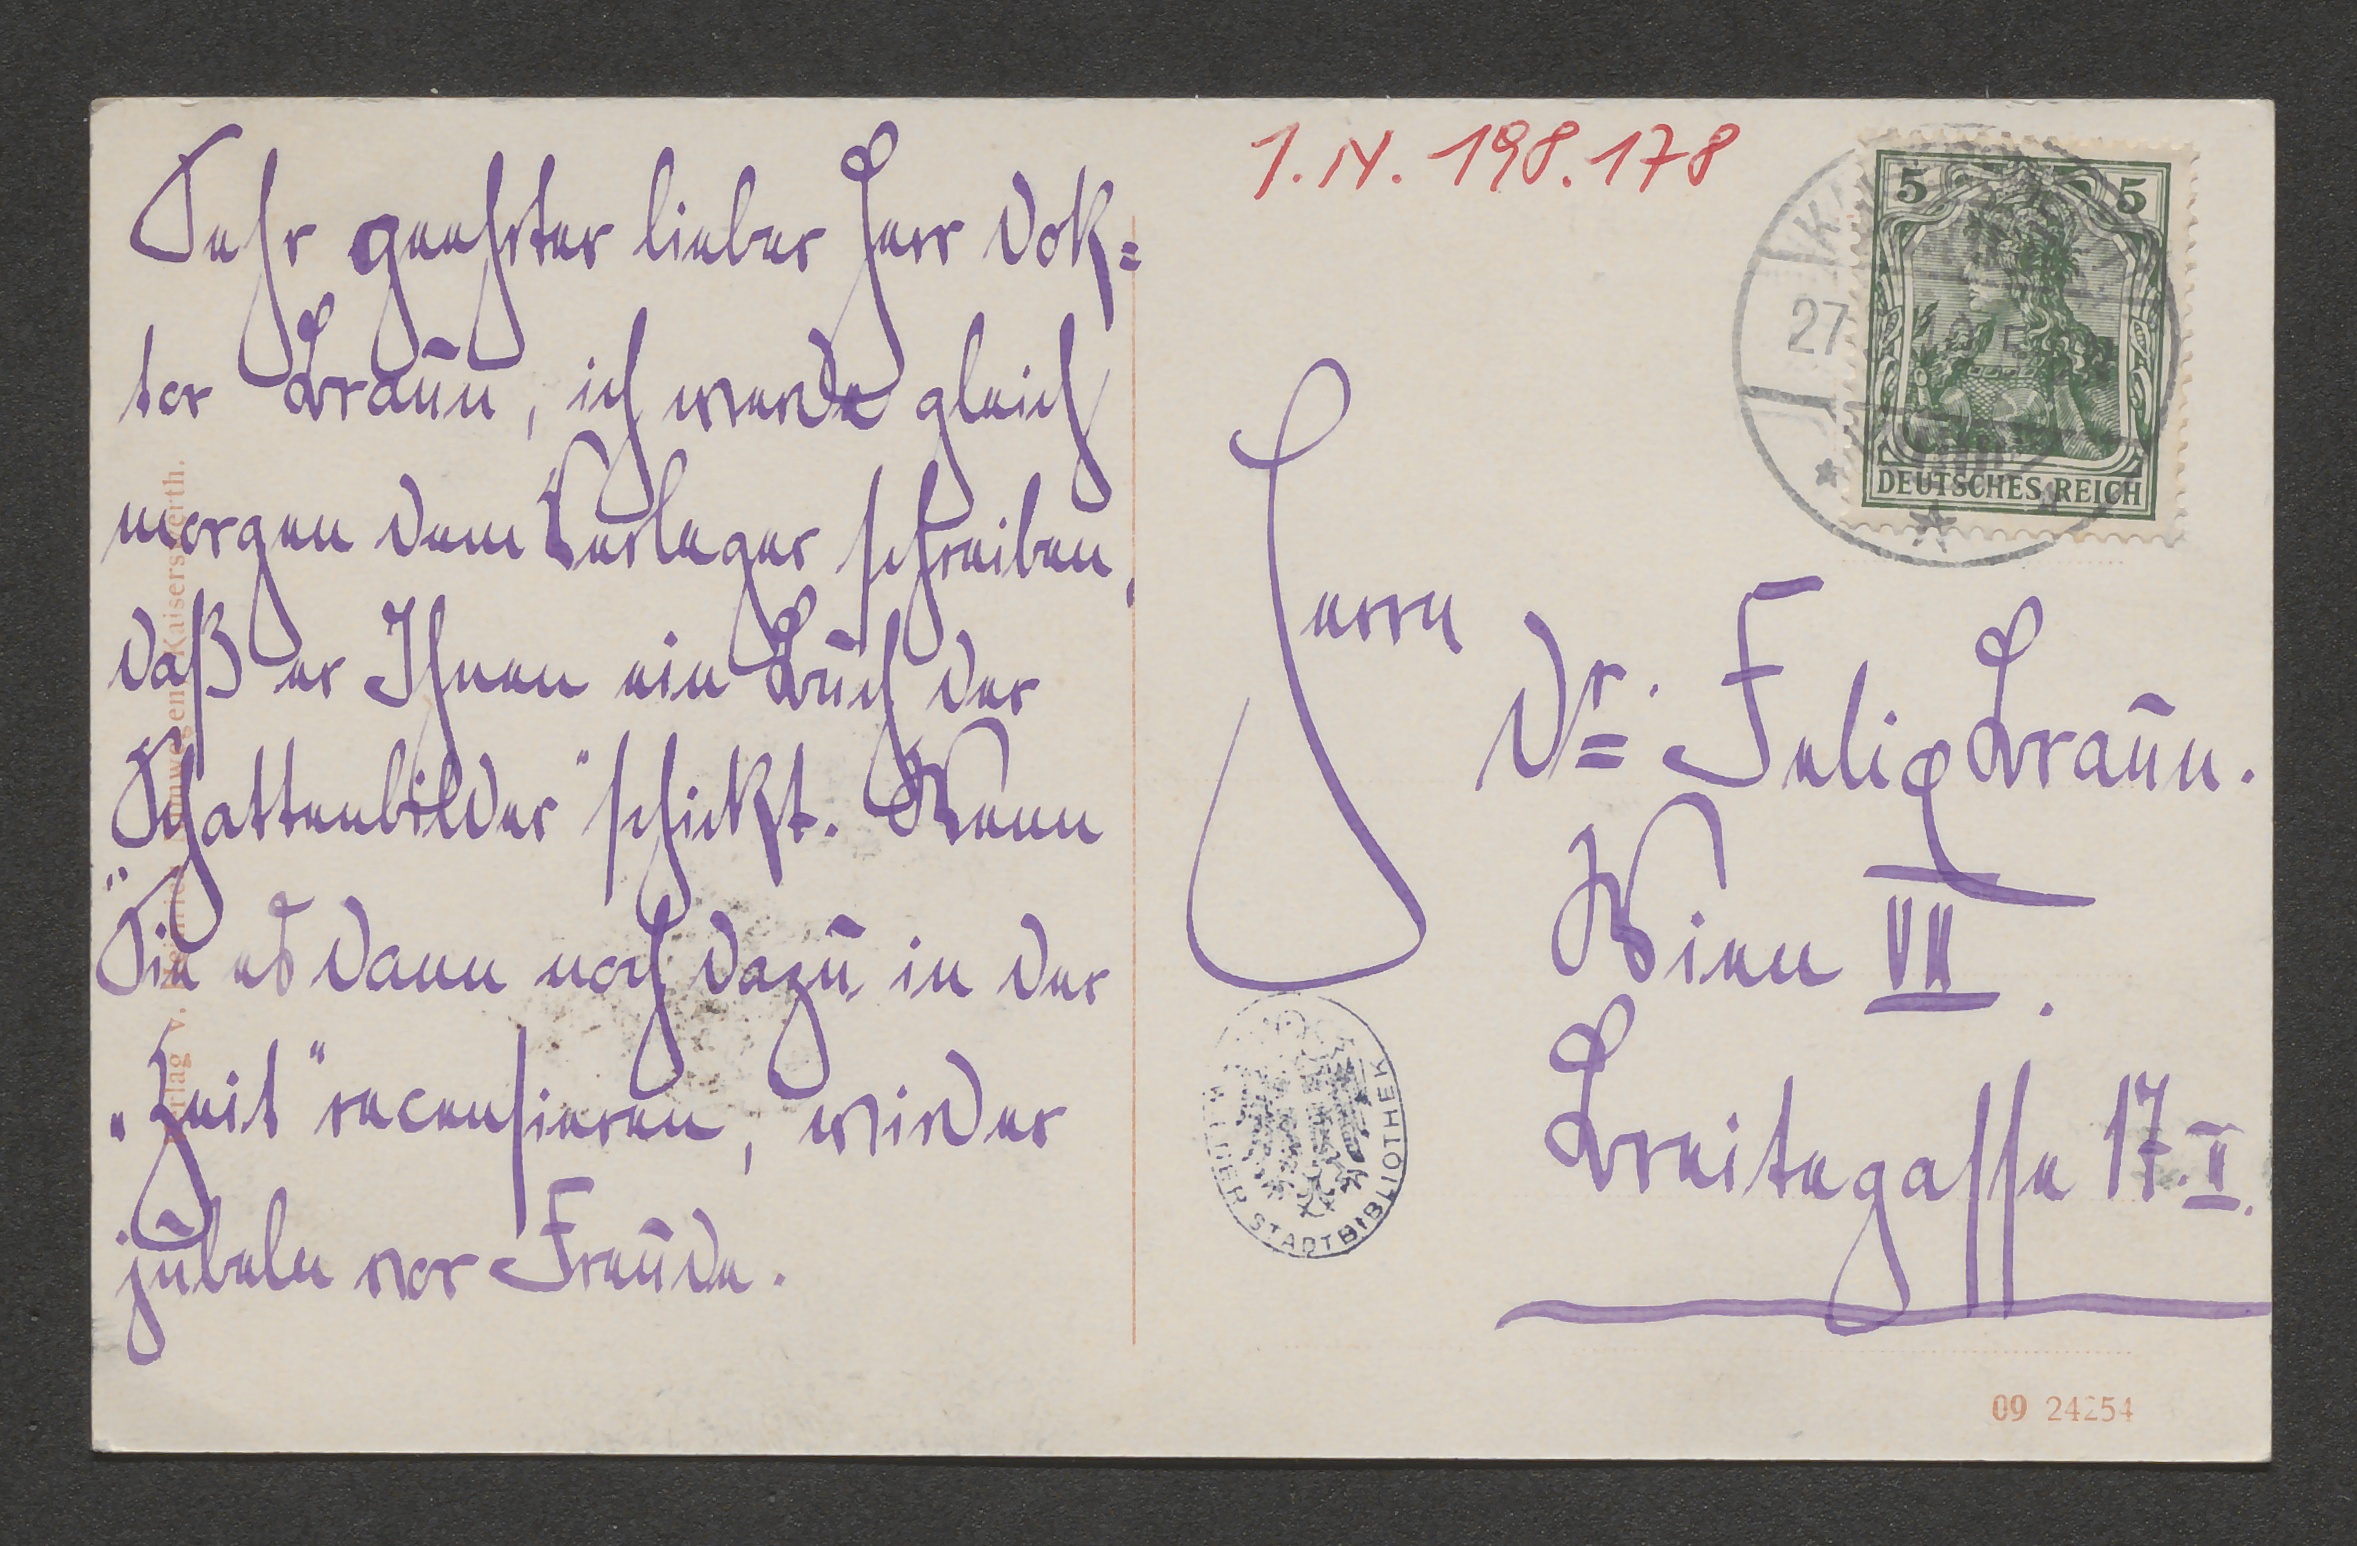 Sehr geehrter lieber Herr Dok=
tor Braun, ich werde gleich
morgen dem Verleger schreiben,
daß er Ihnen ein Buch der
„Schattenbilder“ schickt. Wenn
Sie es dann noch dazu in der
„Zeit“ recensieren, wird er
jubeln vor Freude.
I.N. 198.178
5 5
DEUTSCHES REICH
27
Herrn
Dr. Felix Braun.
Wien VII.
Breitegasse 17. II.
WIENER STADTBIBLIOTHEK
09 24254